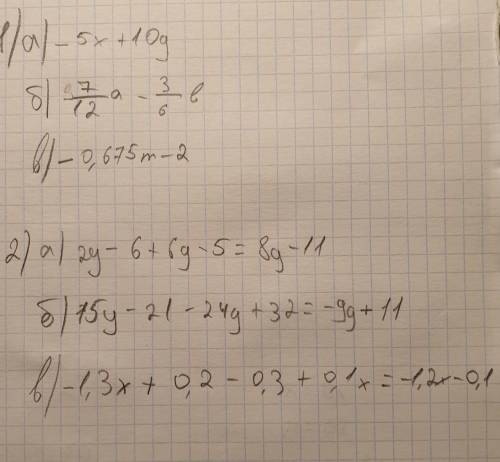 1) а) -5x+10y
б) 7/12 a - 3/6 b
в) -0,675m-2
2) а) 2y-6+6y-5=8y-11
б) 15y-21-24y+32=-9y+11
в) -1,3x+0,2-0,3+0,1x=-1,2x-0,1